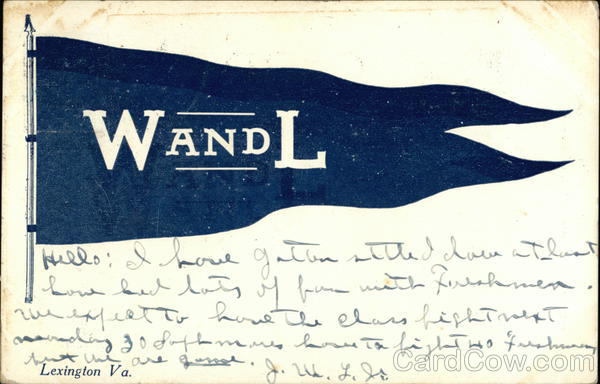 W AND L
Hello: I have gotten settled down at last
have had lots of fun with Freshmen.
We expect to have the class fight next
monday 30 Sophmores have to fight 40 Freshmen
but we are game. J. W. L. Jr.
Lexington Va.
CardCow.com